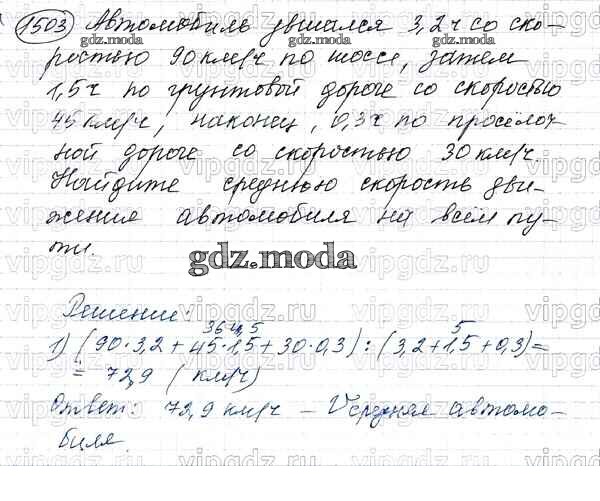 1503) Автомобиль двигался 3,2 ч со ско-
gdz.moda gdz.moda gdz.moda
ростью 90 км/ч по шоссе, затем
1,5 ч по грунтовой дороге со скоростью
45 км/ч, наконец, 0,3 ч по просёлоч
ной дороге со скоростью 30 км/ч.
Найдите среднюю скорость дви-
жения автомобиля на всём пу-
ти.
gdz.moda
Решение:
364,5 5
1) (90·3,2 + 45·1,5 + 30·0,3) : (3,2+1,5+0,3) =
= 72,9 (км/ч)
Ответ: 72,9 км/ч – V средняя автомо-
биля.
vipgdz.ru